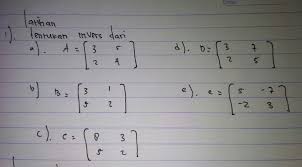 Latihan
1). Tentukan invers dari
a). A = [3 5
2 4]
d). D = [3 7
2 5]
b) B = [3 1
5 2]
e). e = [5 -7
-2 3]
c). C = [8 3
5 2]